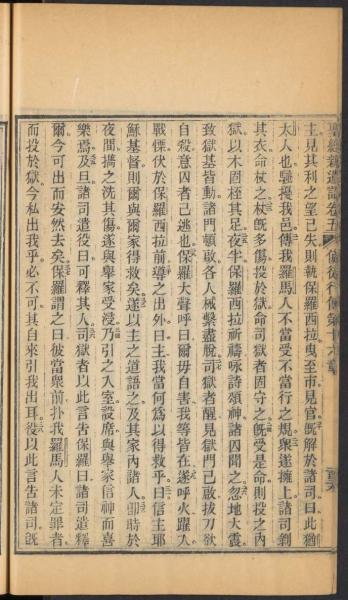 聖經新遺詔卷五　使徒行傳第十六章
主見其利之望已失則執保羅西拉曳至市見官既解於諸司曰此猶
太人也騷擾我邑傳我羅馬人不當受不當行之規衆遂擁上諸司剝
其衣命杖之杖既多傷投於獄命司獄者固守之既受是命則投之內
獄以木固桎其足夜半保羅西拉祈禱咏詩頌神諸囚聞之忽地大震
致獄基皆動諸門頓啟各人械繫盡脫司獄者醒見獄門已啟拔刀欲
自殺意囚者已逃也保羅大聲呼曰爾毋自害我等皆在遂呼火躍入
戰慄伏於保羅西拉前導之出外曰主我當何為以得救乎曰信主耶
穌基督則爾與爾家得救矣遂以主之道語之及其家內諸人卽時於
夜間攜之洗其傷遂與舉家受浸乃引之入室設席與舉家信神而喜
樂焉及旦諸司遣役曰可釋其人司獄者以此言告保羅曰諸司遣釋
爾今可出而安然去矣保羅謂之曰彼當衆前扑我羅馬人未定罪者
而投於獄今私出我乎必不可其自來引我出耳役以此言告諸司既